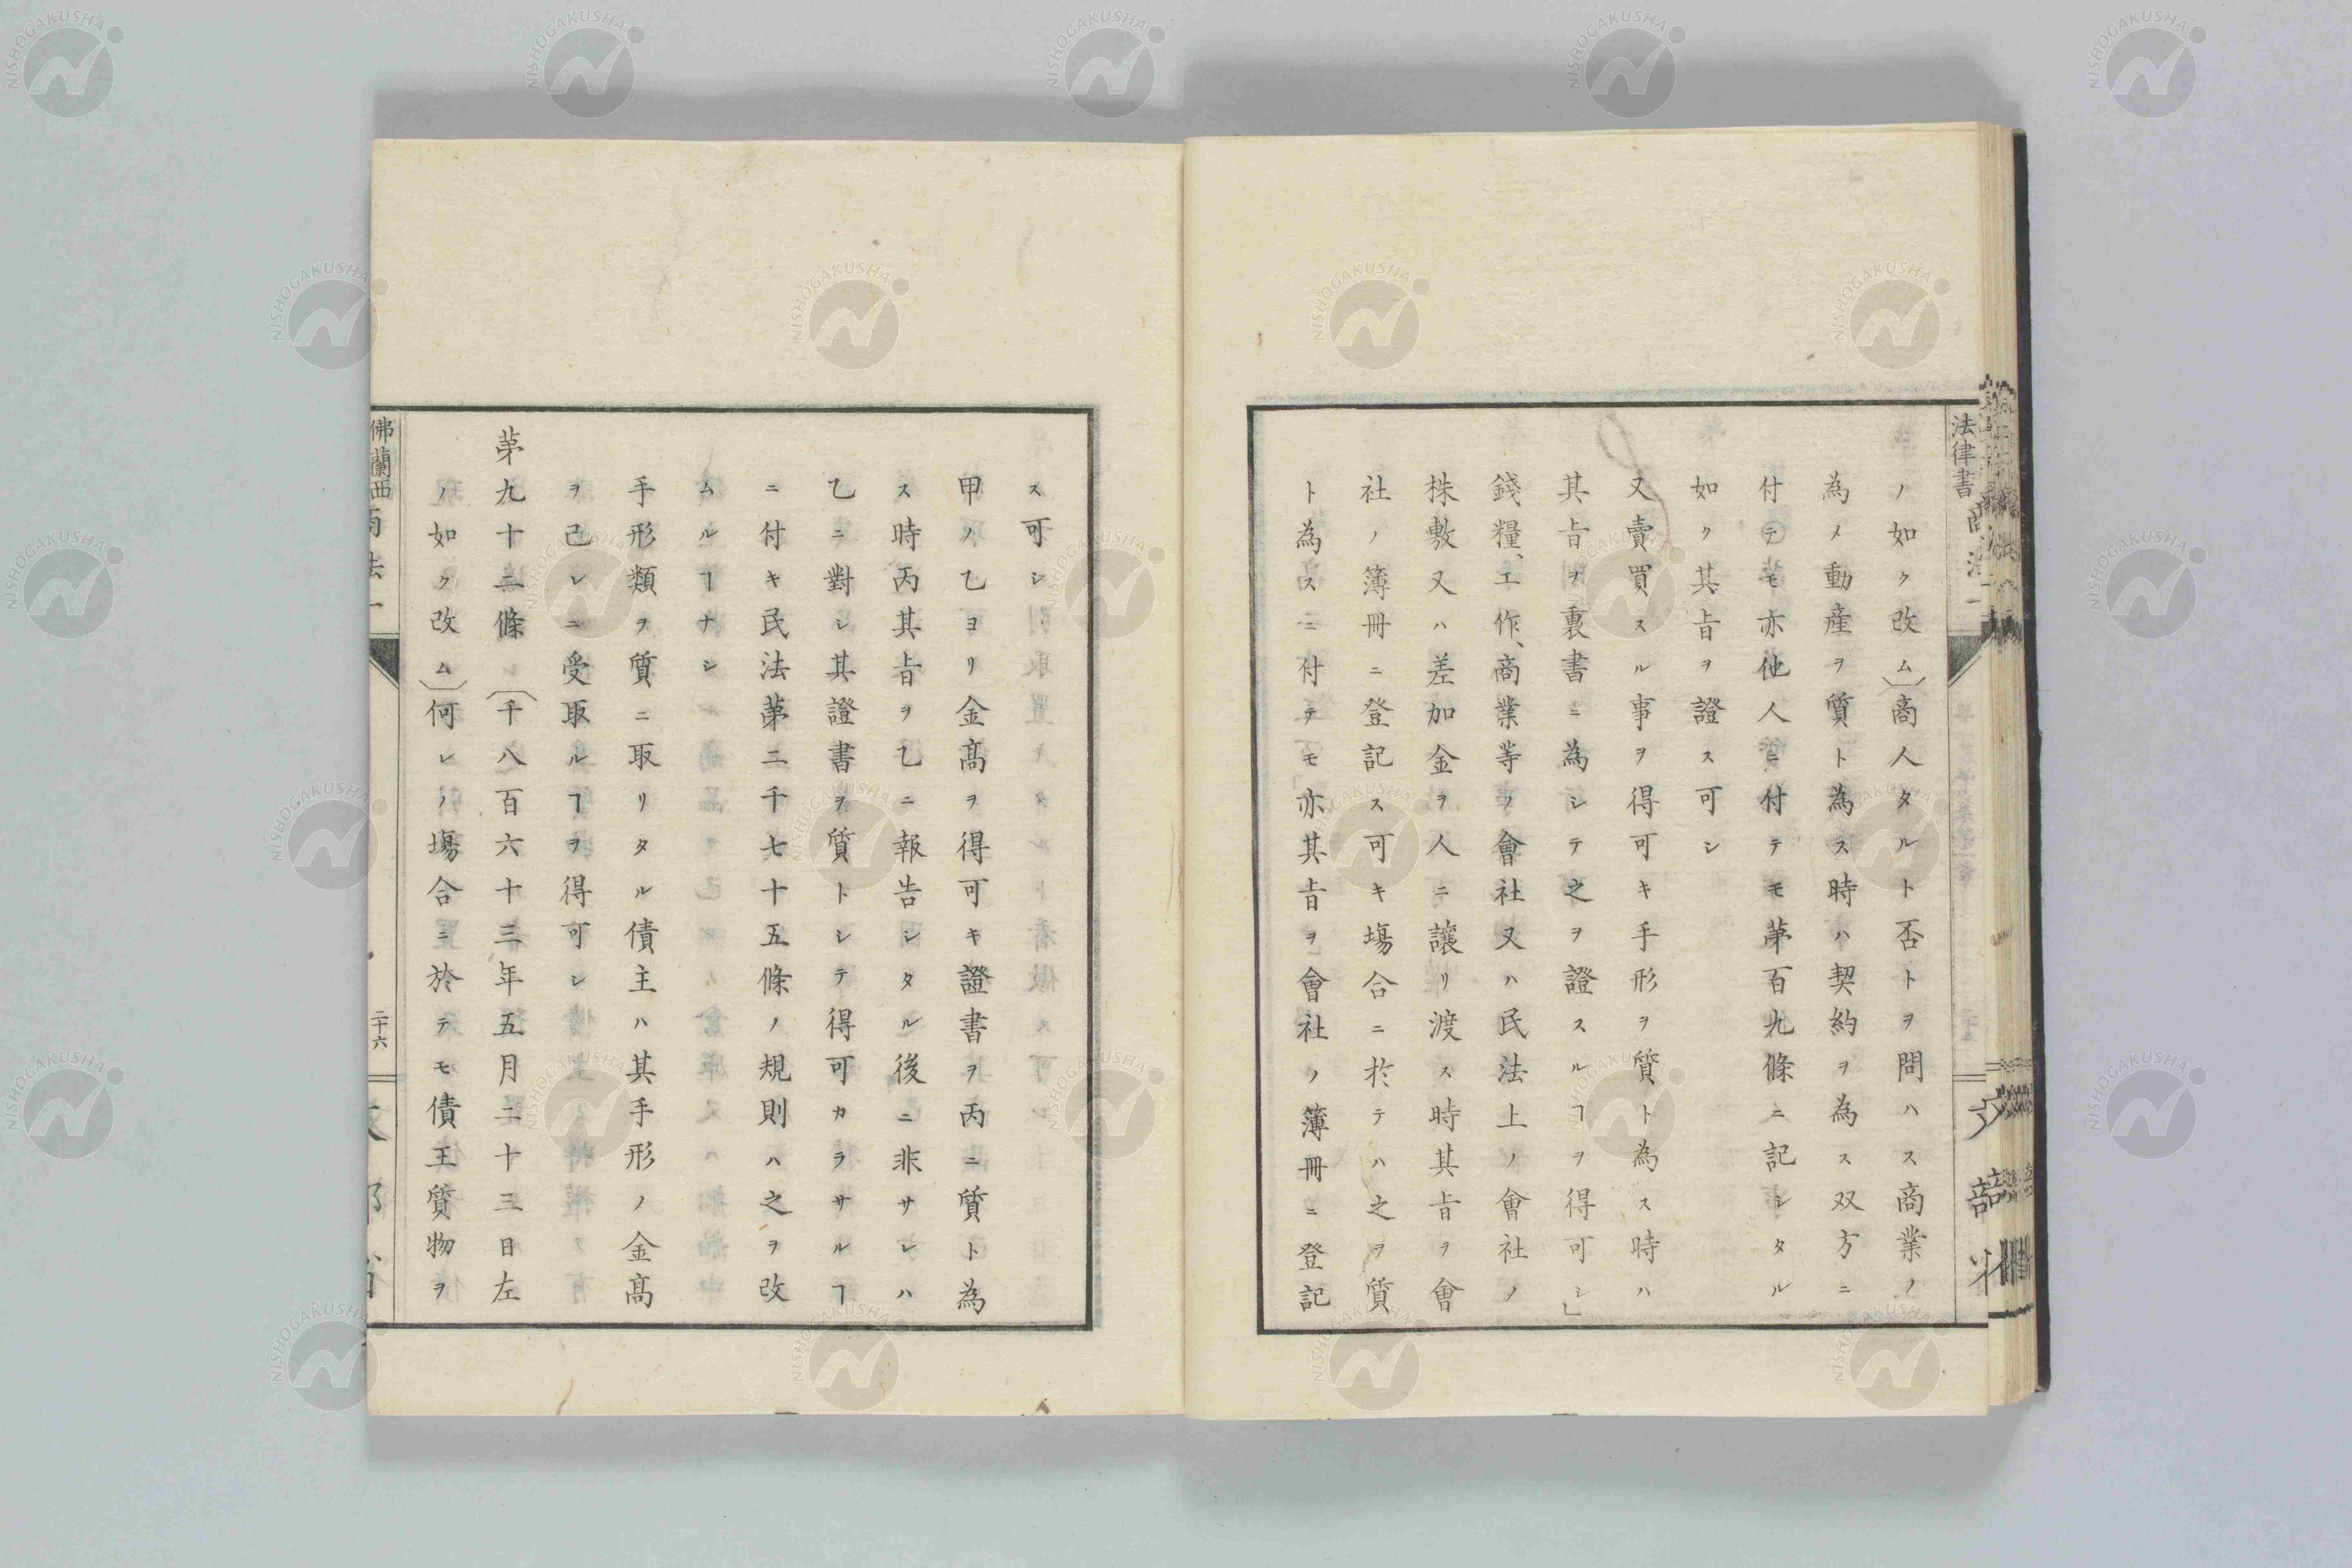 ノ如ク改ム〕商人タルト否トヲ問ハス商業ノ
為メ動産ヲ質ト為ス時ハ契約ヲ為ス双方ニ
付テモ亦他人ニ付テモ苐百九條ニ記シタル
如ク其㫖ヲ證ス可シ
又賣買スル事ヲ得可キ手形ヲ質ト為ス時ハ
其㫖ヲ裏書ニ為シテ之ヲ證スルヿヲ得可シ」
錢糧、工作、商業等ノ會社又ハ民法上ノ會社ノ
株敷又ハ差加金ヲ人ニ讓リ渡ス時其㫖ヲ會
社ノ簿冊ニ登記ス可キ塲合ニ於テハ之ヲ質
ト為スニ付テモ亦其㫖ヲ會社ノ簿冊ニ登記
ス可シ
甲ノ乙ヨリ金髙ヲ得可キ證書ヲ丙ニ質ト為
ス時丙其㫖ヲ乙ニ報告シタル後ニ非サレハ
乙ニ對シ其證書ヲ質トシテ得可カラサルヿ
ニ付キ民法苐二千七十五條ノ規則ハ之ヲ改
ムルヿナシ
手形類ヲ質ニ取リタル債主ハ其手形ノ金髙
ヲ己レニ受取ルヿヲ得可シ
苐九十二條〔千八百六十三年五月二十三日左
ノ如ク改ム〕何レノ塲合ニ於テモ債主質物ヲ
法律書
佛蘭西
二十六
NISHOGAKUSHA